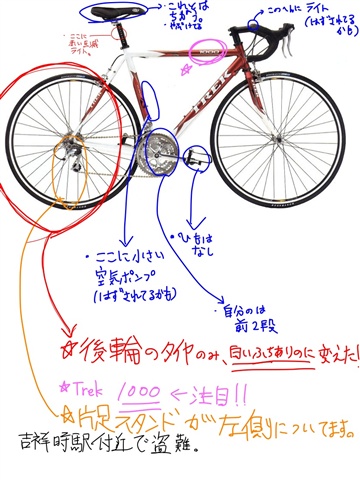 ・これとは
ちがう。
・やぶけてる
・ここに
赤い点滅
ライト。
・このへんに ライト
(はずされてる
かも)
1000
TREK
・ここに小さい
空気ポンプ
(はずされてるかも)
・ひもは
なし
・自分のは
前2段
☆後輪のタイヤのみ、白いふちありのに変えた!
☆Trek 1000 ←注目!!
☆片足スタンドが左側についてます。
吉祥時駅付近で盗難。